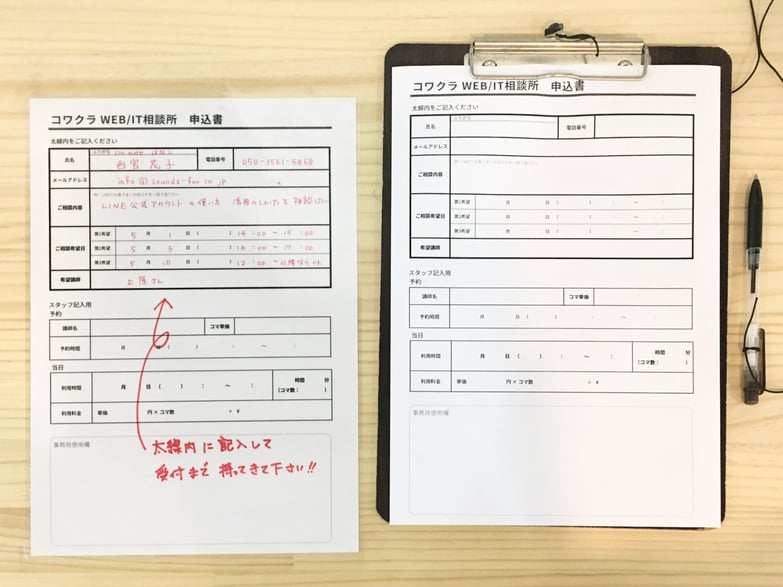 コワクラ WEB/IT相談所 申込書
太線内をご記入ください
氏名 西宮 花子 電話番号 050-3561-5858
メールアドレス info@sounds-fun.co.jp
ご相談内容
LINE公式アカウントの使い方
ご相談希望日
第1希望 5 月 1 日 ( ) 14 : 00 ～ 15 : 00
第2希望 5 月 3 日 ( ) 16 : 00 ～ 17 : 00
第3希望 5 月 10 日 ( ) 12 : 00 ～ 以降ならOK
希望講師 上原さん
スタッフ記入用
予約
講師名 コマ単価
予約時間 月 日 ( ) : ～ :
当日
利用時間 月 日 ( ) : ～ : 時間 分
(コマ数: )
利用料金 単価 円 × コマ数 = ¥
事務局使用欄
太線内に記入して
受付まで持ってきて下さい!!
コワクラ WEB/IT相談所 申込書
太線内をご記入ください
氏名 電話番号
メールアドレス
ご相談内容
ご相談希望日
第1希望 月 日 ( ) : ～ :
第2希望 月 日 ( ) : ～ :
第3希望 月 日 ( ) : ～ :
希望講師
スタッフ記入用
予約
講師名 コマ単価
予約時間 月 日 ( ) : ～ :
当日
利用時間 月 日 ( ) : ～ : 時間 分
(コマ数: )
利用料金 単価 円 × コマ数 = ¥
事務局使用欄